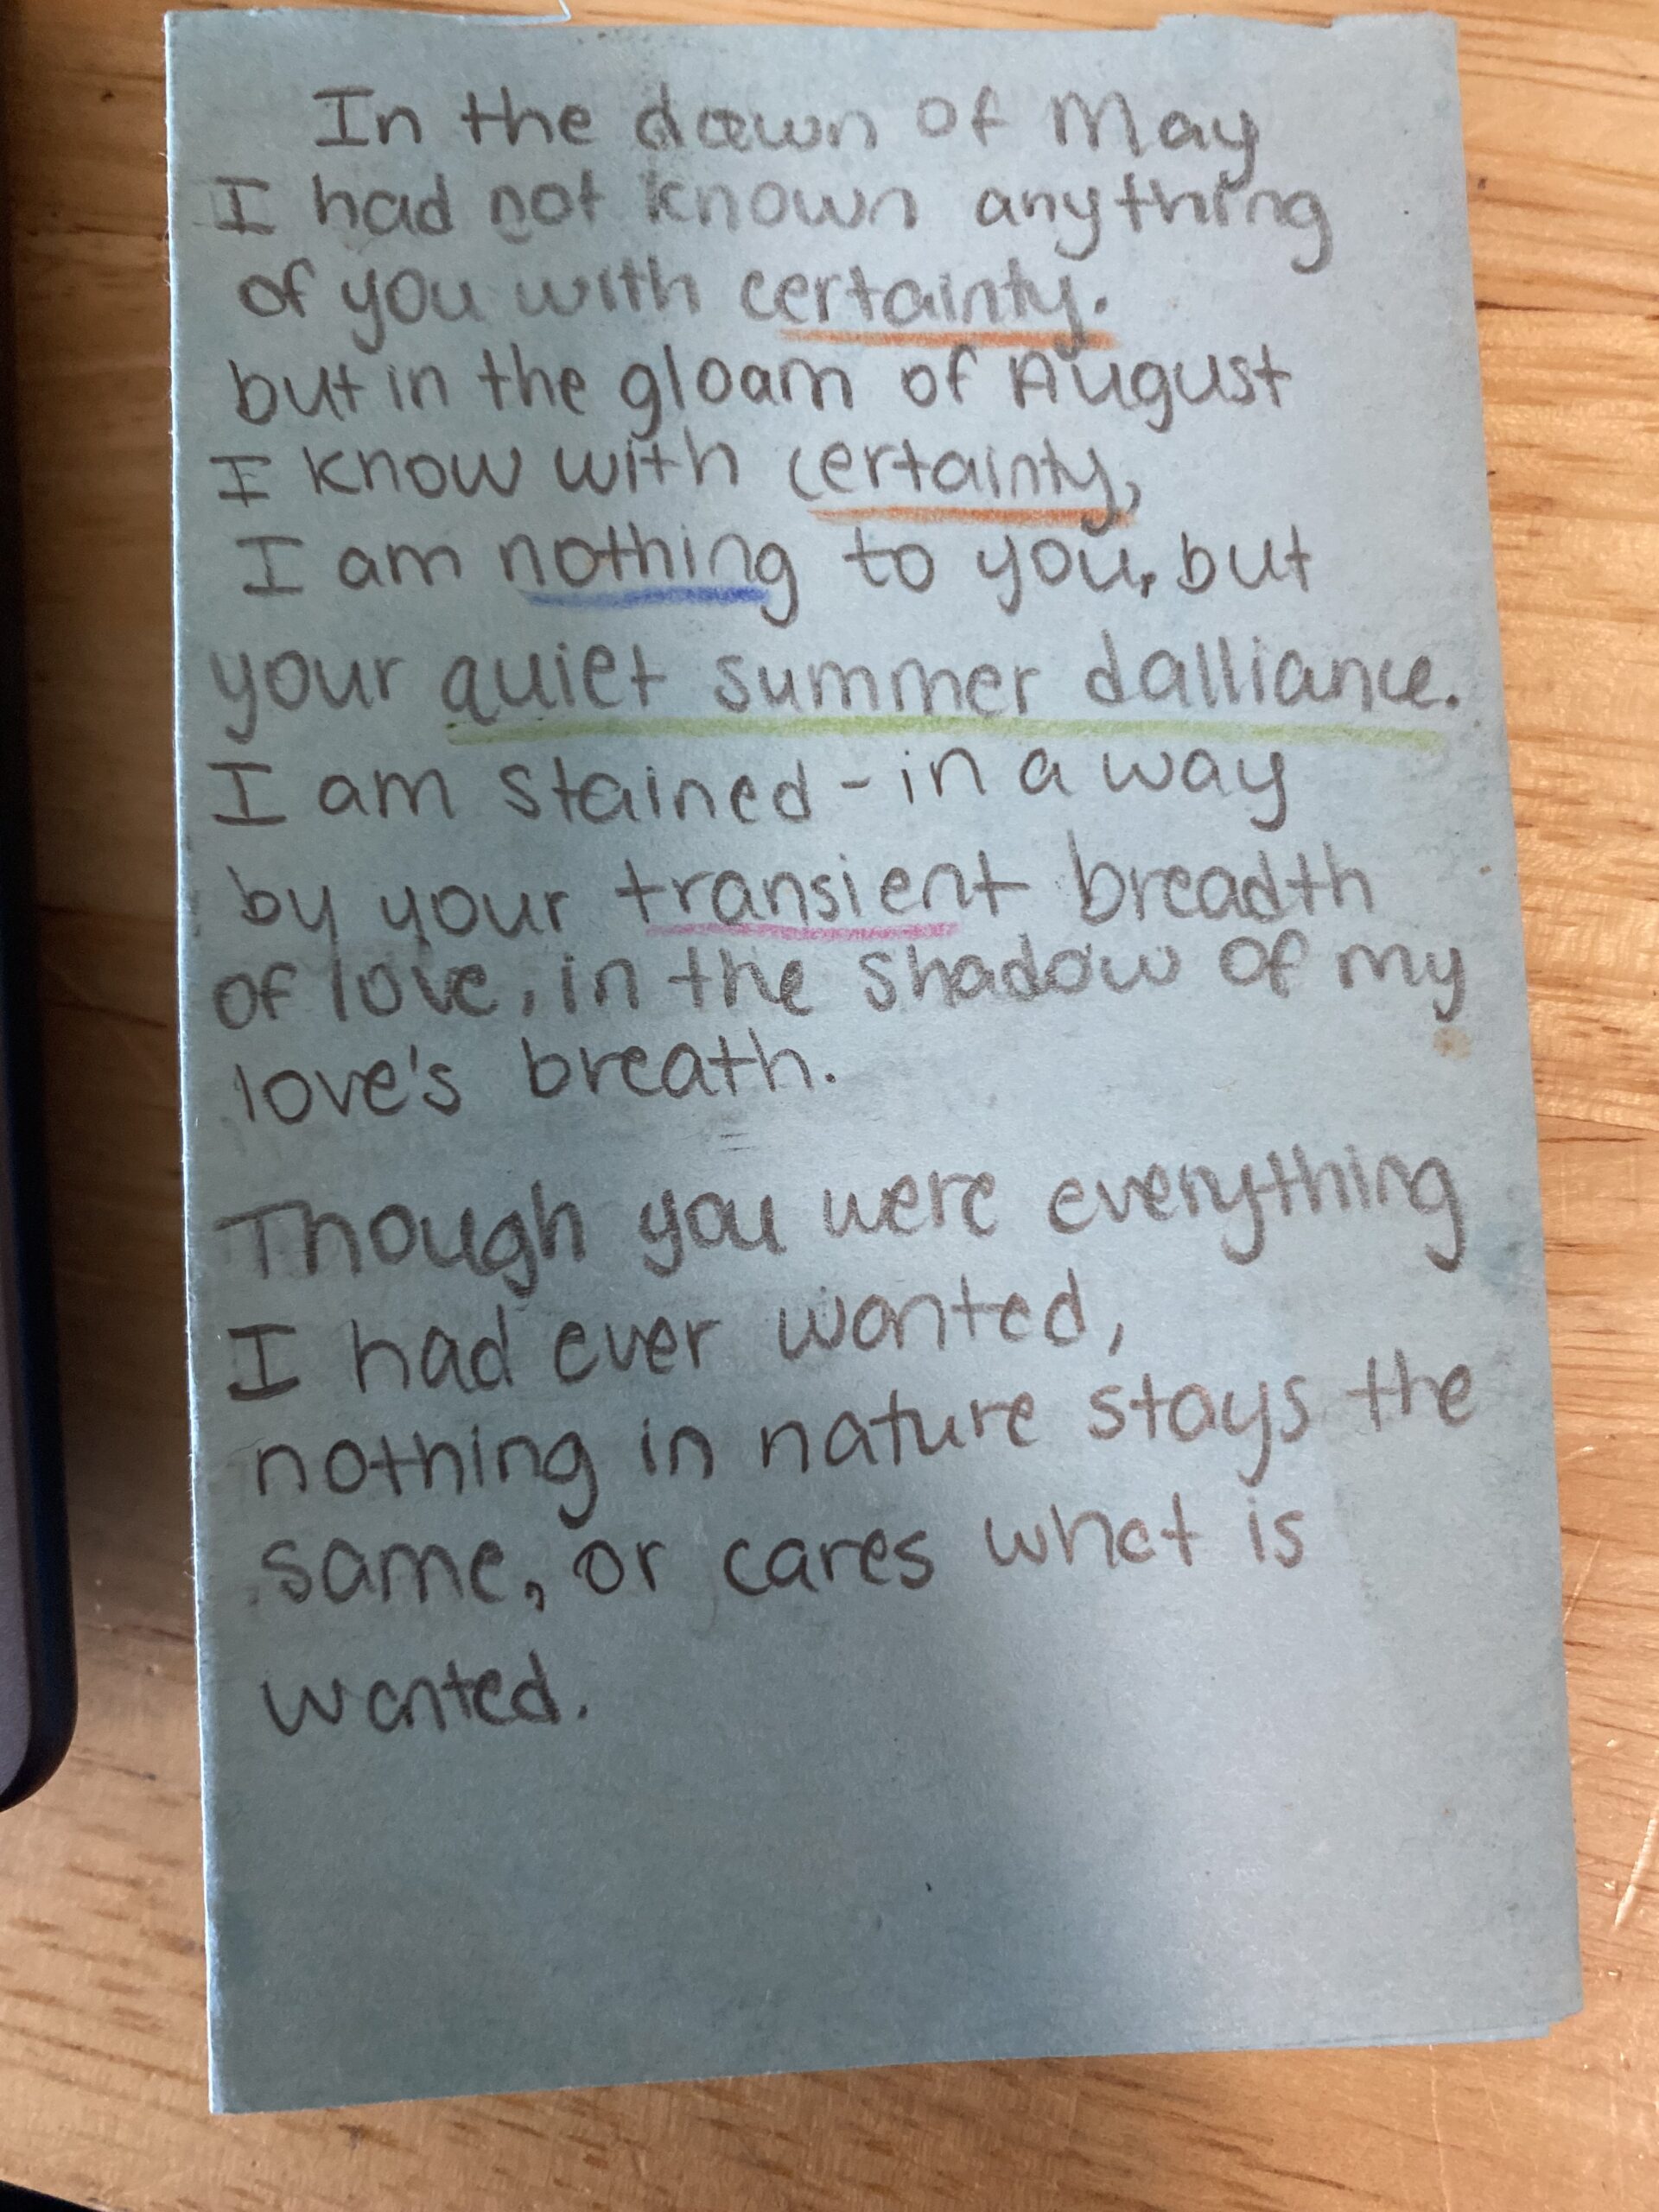 In the dawn of May
I had not known anything
of you with certainty.
but in the gloam of August
I know with certainty,
I am nothing to you, but
your quiet summer dalliance.
I am stained - in a way
by your transient breadth
of love, in the shadow of my
love's breath.
Though you were everything
I had ever wanted,
nothing in nature stays the
same, or cares what is
wanted.